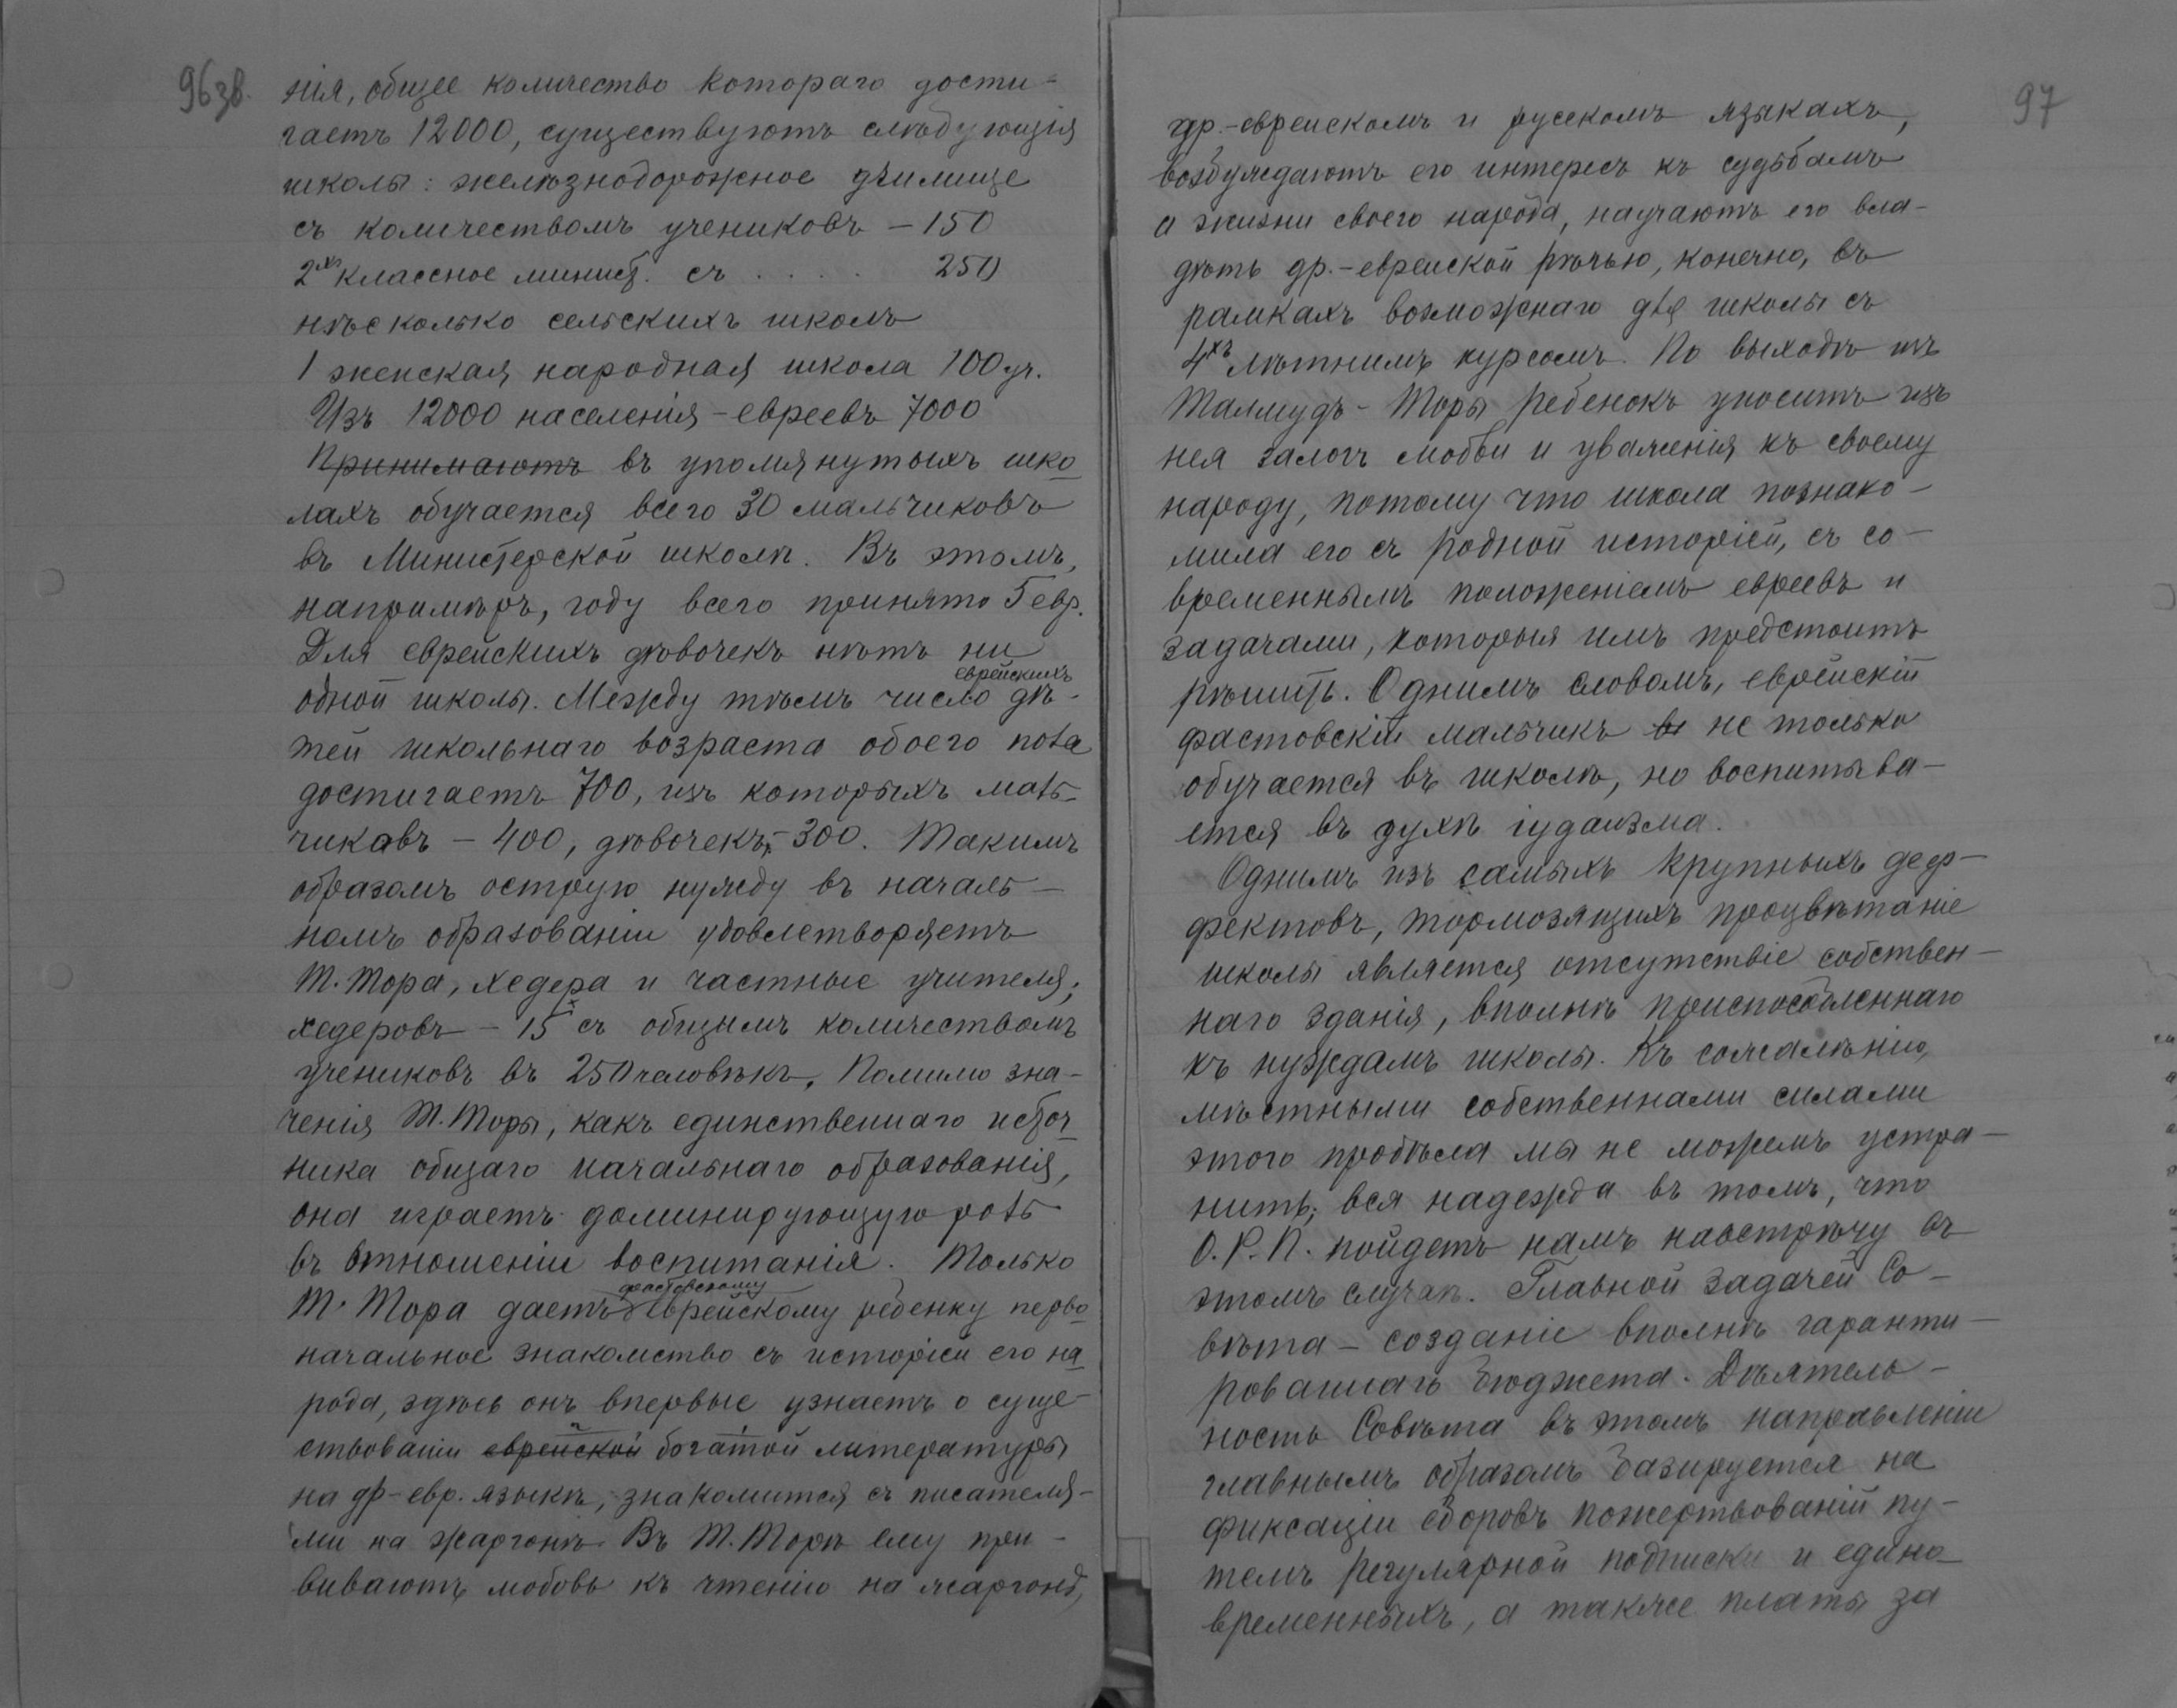 96зв.
нія, общее количество котораго дости-
гаетъ 12000, существуютъ слѣдующія
школы: желѣзнодорожное училище
съ количествомъ учениковъ – 150
2хъ классное минист. съ . . . . 250
нѣсколько сельскихъ школъ
1 женская народная школа 100 уч.
Изъ 12000 населенія – евреевъ 7000
Принимаютъ въ упомянутыхъ шко-
лахъ обучается всего 30 мальчиковъ
въ Министерской школѣ. Въ этомъ,
напримѣръ, году всего принято 5 евр.
Для еврейскихъ дѣвочекъ нѣтъ ни
еврейскихъ
одной школы. Между тѣмъ число дѣ-
тей школьнаго возраста обоего пола
достигаетъ 700, изъ которыхъ маль-
чиковъ – 400, дѣвочекъ – 300. Такимъ
образомъ острую нужду въ началь-
номъ образованіи удовлетворяетъ
Т. Тора, хедера и частные учителя;
хедеровъ – 15 съ общимъ количествомъ
учениковъ въ 250 человѣкъ. Помимо зна-
ченія Т. Торы, какъ единственнаго источ-
ника общаго начальнаго образованія,
она играетъ доминирующую роль
въ отношеніи воспитанія. Только
фастовскому
Т. Тора даетъ еврейскому ребенку перво-
начальное знакомство съ исторіей его на-
рода, здѣсь онъ впервые узнаетъ о суще-
ствованіи еврейской богатой литературы
на др-евр. языкѣ, знакомится съ писателя-
ми на жаргонѣ. Въ Т. Торѣ ему при-
виваютъ любовь къ чтенію на жаргонѣ,
97
др.-еврейскомъ и русскомъ языкахъ,
возбуждаютъ его интересъ къ судьбамъ
и жизни своего народа, научаютъ его вла-
дѣть др.-еврейской рѣчью, конечно, въ
рамкахъ возможнаго для школы съ
4хъ лѣтнимъ курсомъ. По выходѣ изъ
Талмудъ-Торы ребенокъ уноситъ изъ
нея залогъ любви и уваженія къ своему
народу, потому что школа познако-
мила его съ родной исторіей, съ со-
временнымъ положеніемъ евреевъ и
задачами, которыя имъ предстоитъ
рѣшить. Однимъ словомъ, еврейскій
фастовскій мальчикъ не только
обучается въ школѣ, но воспитыва-
ется въ духѣ іудаизма.
Однимъ изъ самыхъ крупныхъ деф-
фектовъ, тормозящихъ процвѣтаніе
школы является отсутствіе собствен-
наго зданія, вполнѣ приспособленнаго
къ нуждамъ школы. Къ сожалѣнію,
мѣстными собственнами силами
этого пробѣла мы не можемъ устра-
нить; вся надежда въ томъ, что
О.Р.П. пойдетъ намъ навстрѣчу въ
этомъ случаѣ. Главной задачей Со-
вѣта – созданіе вполнѣ гаранти-
рованнаго бюджета. Дѣятель-
ность Совѣта въ этомъ направленіи
главнымъ образомъ базируется на
фиксаціи сборовъ пожертвованій пу-
темъ регулярной подписки и едино-
временныхъ, а также платы за